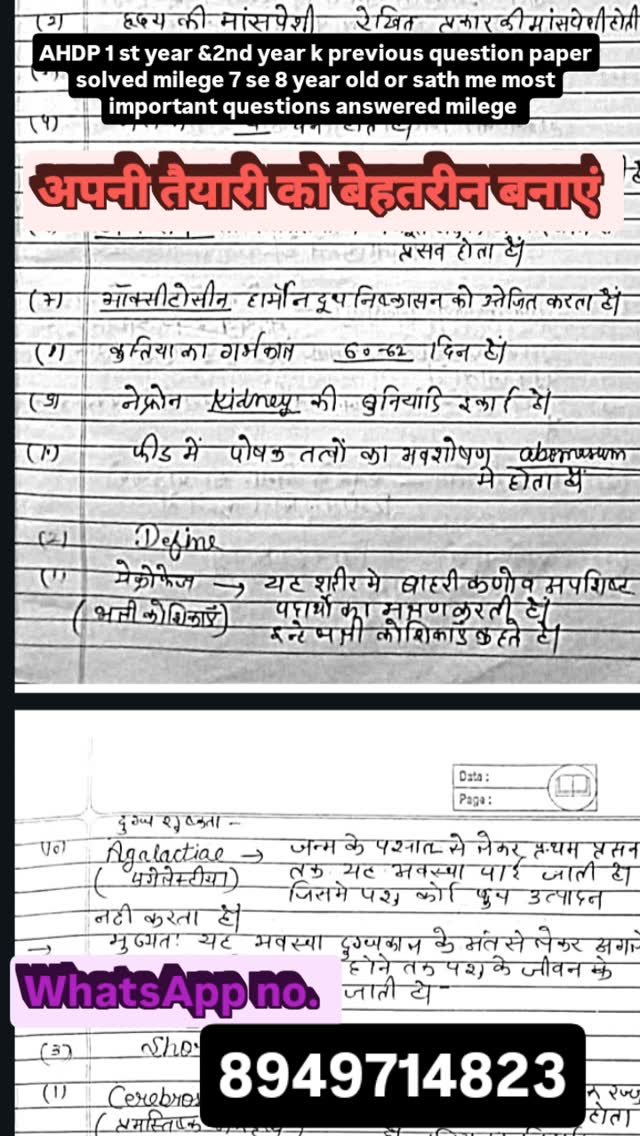 (२) हृदय की मांसपेशी रेखित प्रकार की मांसपेशी होती
AHDP 1 st year &2nd year k previous question paper
solved milege 7 se 8 year old or sath me most
important questions answered milege
(५)
अपनी तैयारी को बेहतरीन बनाएं
प्रसव होता है।
(७) ऑक्सीटोसीन हार्मोन दूध निष्कासन को उत्तेजित करता है।
(८) कुतिया का गर्भकाल 60-62 दिन है।
(९) नेफ्रोन Kidney की बुनियादि इकाई है।
(१०) फीड में पोषक तत्वों का अवशोषण abomasum
में होता है
(2) Define
(१) मेक्रोफेज → यह शरीर में बाहरी कणो व अपशिष्ट
(भक्षी कोशिकाएँ) पदार्थो का भक्षण करती है।
इन्हे भक्षी कोशिकाएं कहते है।
Data :
Page :
दुग्ध शुष्कता -
(10) Agalactiae → जन्म के पश्चात से लेकर प्रथम प्रसव
(एगेलेक्टीया) तक यह अवस्था पाई जाती है।
जिसमे पशु कोई दूध उत्पादन
नही करता है।
→ मुख्यतः यह अवस्था दुग्धकाल के अंत से लेकर अगले
होने तक पशु के जीवन के
WhatsApp no.
जाती है-
(3) Sho
8949714823
(1) Cerebros
(प्रमस्तिष्क
होता